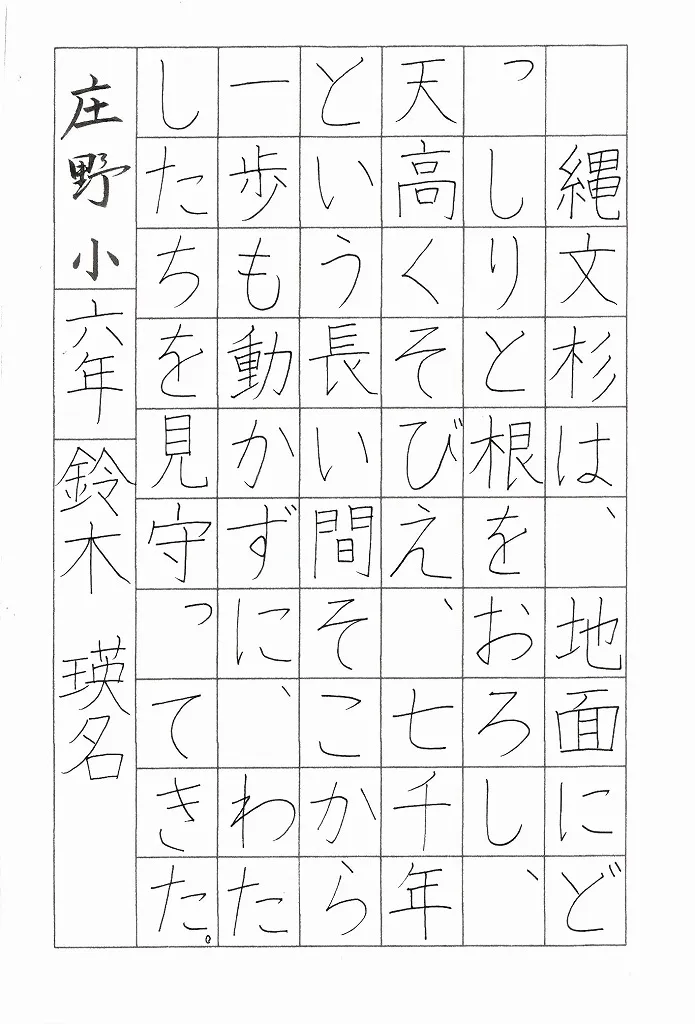 縄文杉は、地面にど
っしりと根をおろし、
天高くそびえ、七千年
という長い間そこから
一歩も動かずに、わた
したちを見守ってきた。
庄野小 六年 鈴木 瑛名